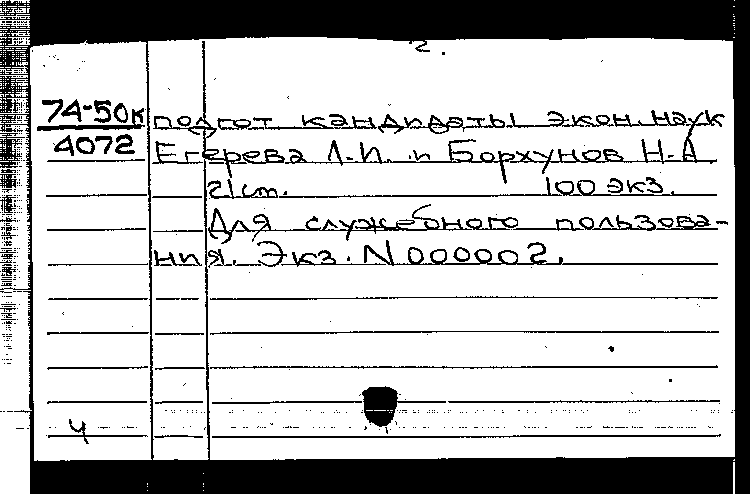 2.
74-50к подгот кандидаты экон. наук
4072 Егерева Л.И. и Борхунов Н.А
21 см. 100 экз.
Для служебного пользова-
ния. Экз. N 000002.
4